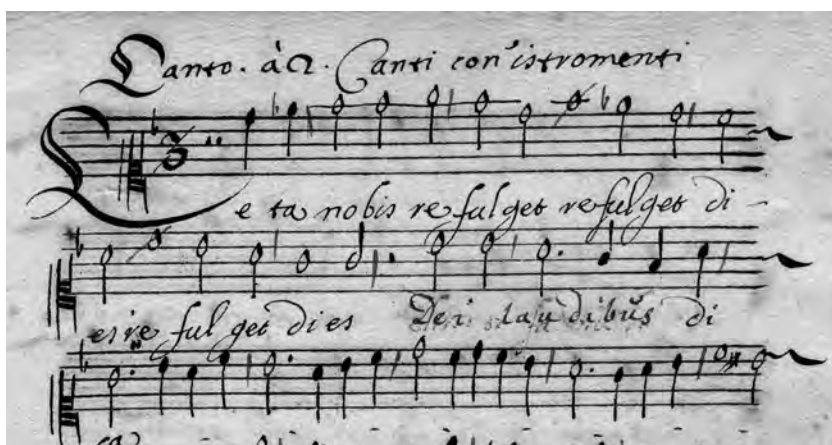 Canto. à 2. Canti con istromenti
Le ta nobis re ful get re ful get di -
es re ful get di es Dei lau dibus di